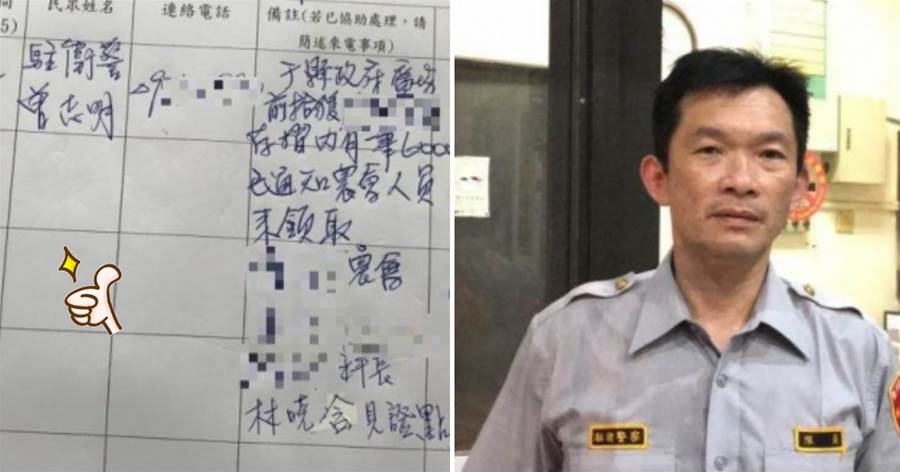 民眾姓名
連絡電話
備註(若已協助處理，請
簡述來電事項)
駐衛警
曾志明
09
于縣政府廣場
前拾獲
存摺內有一筆6000
已通知農會人員
來領取
農會
科長
林曉含見證點
駐衛警察
隊員